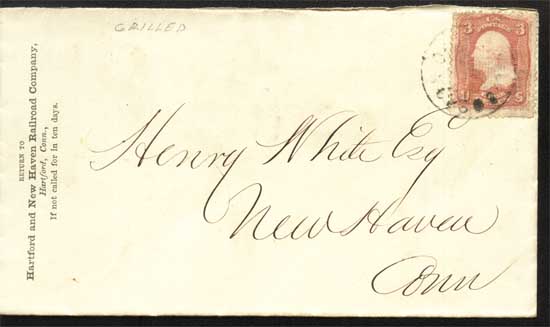 GRILLED
RETURN TO
Hartford and New Haven Railroad Company,
Hartford, Conn.,
If not called for in ten days.
3 3
Henry White Esq
New Haven
Conn